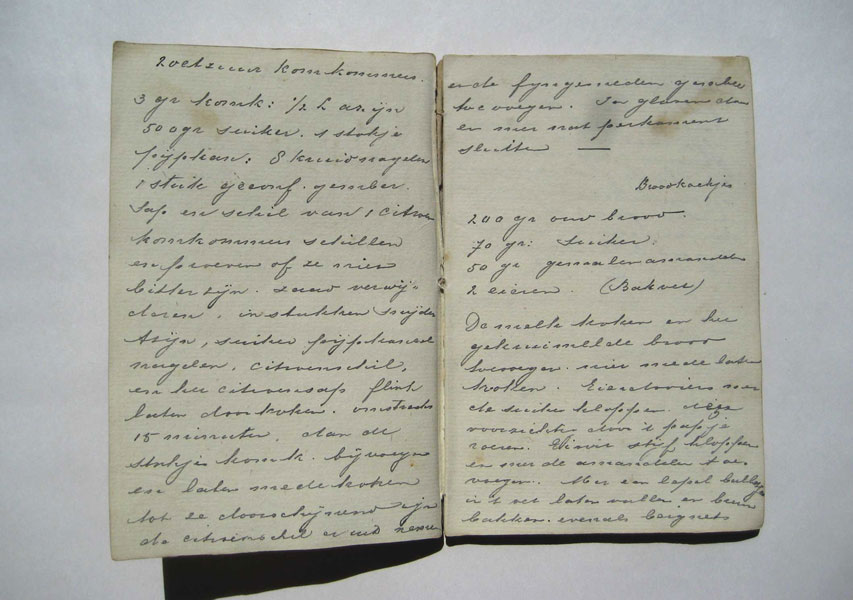 Zoetzuur komkommer.
3 gr komk: 1/2 L azijn
500 gr suiker. 1 stokje
pijpkan: 8 kruidnagelen
1 stuk geconf. gember.
Sap en schil van 1 citroen
komkommers schillen
en proeven of ze niet
bitter zijn. zaad verwij-
deren, in stukken snijden
Azijn, suiker pijpkaneel
nagelen, citroenschil,
en het citroensap flink
laten doorkoken. omstreeks
15 minuten, dan de
stukje komk. bijvoegen
en laten mede koken
tot ze doorschijnend zijn
de citroenschil er uit nemen
en de fijngesneden gember
toevoegen. In glazen doen
en met nat perkament
sluiten —
Broodkoekjes
200 gr oud brood.
70 gr: suiker.
50 gr gemalen amandelen
2 eieren. (Bakvet)
De melk koken en het
gekruimelde brood
toevoegen. mede laten
koken. Eierdooiers met
de suiker kloppen.
voorzichtig door 't papje
roeren. Eiwit stijf kloppen
en met de amandelen toe-
voegen. Met een lepel balletjes
in 't vet laten vallen en bruin
bakken. evenals beignets